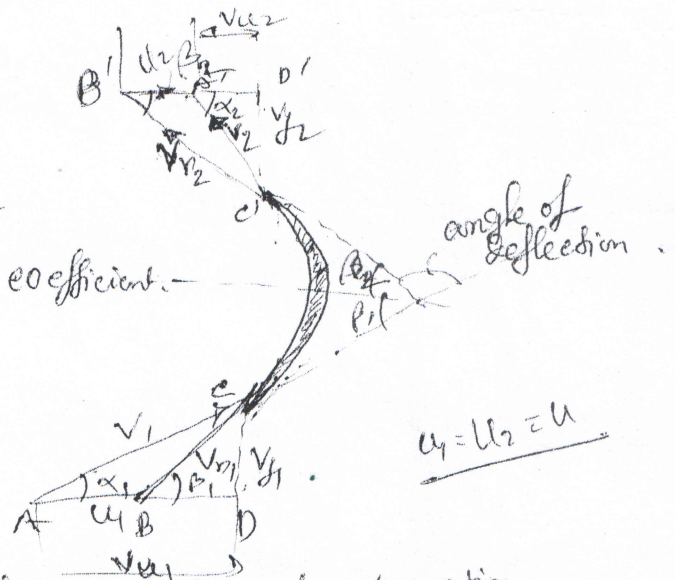 Vu2
B' U2 β2 A' D'
α2
V2 Vf2
Vr2
C'
angle of
deflection.
coefficient.
β2
β1
C
V1
Vr1 Vf1
u1 = U2 = U
α1 β1
A U1 B D
Vu1